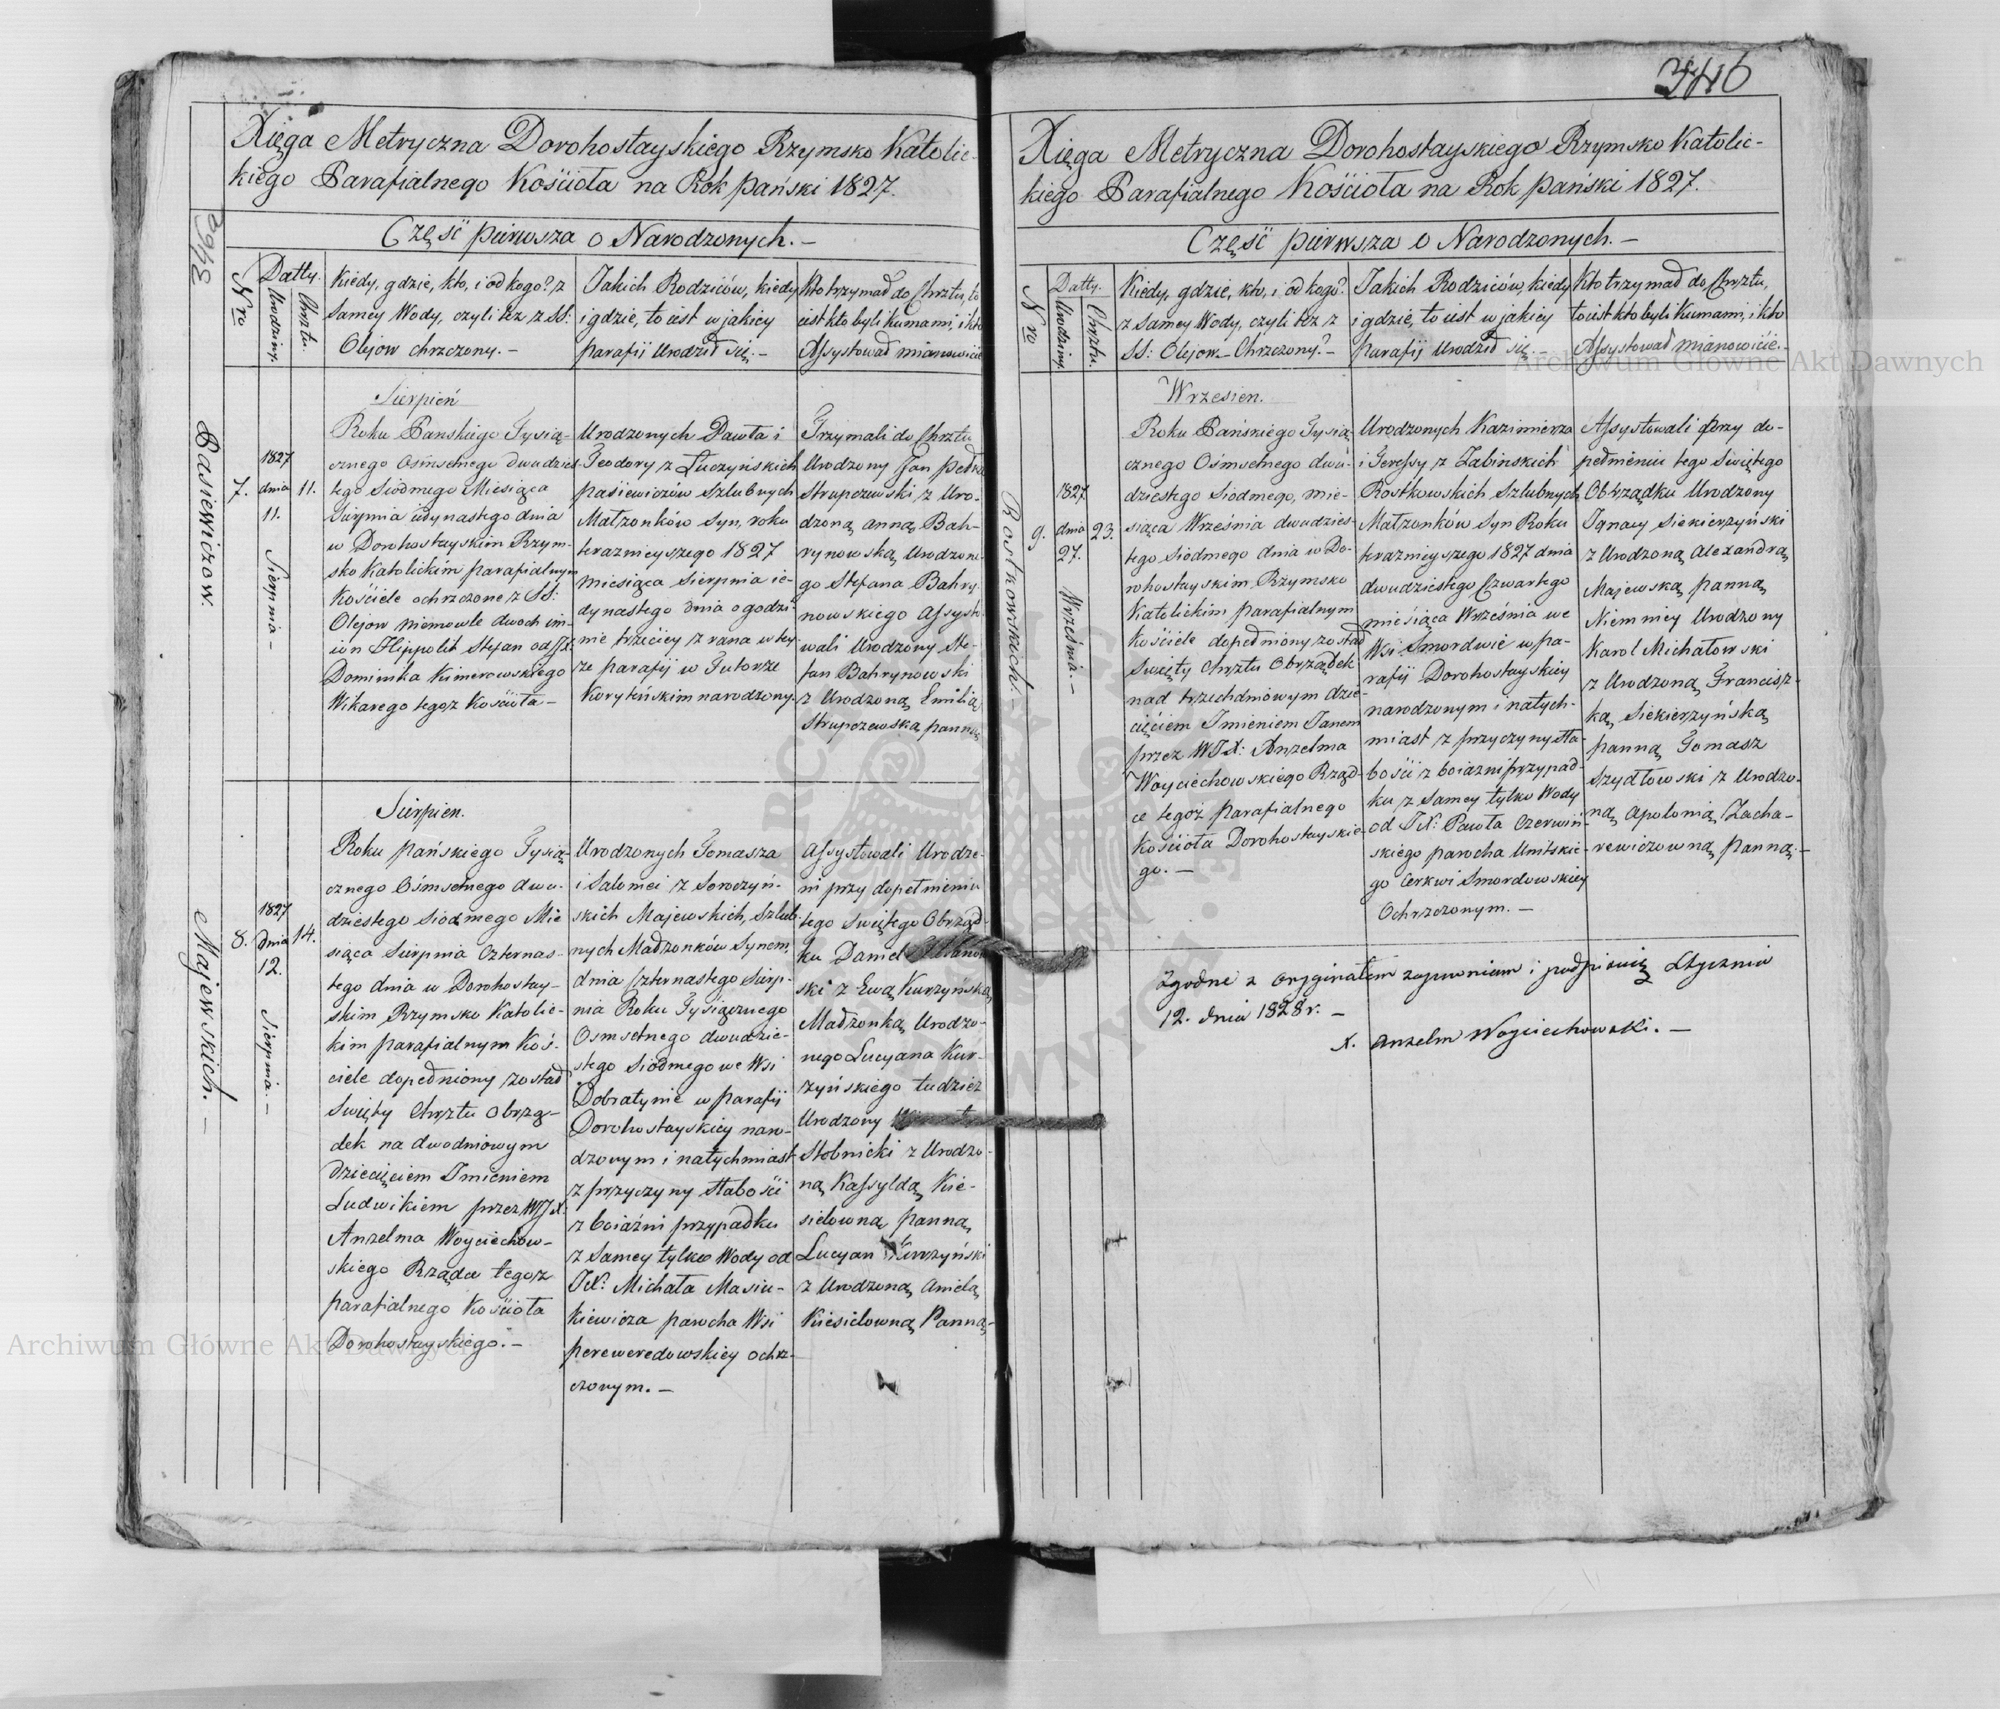 Xięga Metryczna Dorohostayskiego Rzymsko Katolic-
kiego Parafialnego Kościoła na Rok pański 1827.
Część pierwsza o Narodzonych. —
Nro
Datty.
Urodziny.
Chrztu.
Kiedy, gdzie, kto, i od kogo?, z
Samey Wody, czyli też z SS:
Olejow chrzczony. —
Jakich Rodziców, kiedy
i gdzie, to iest w jakiey
parafij Urodził się. —
Kto trzymał do Chrztu, to
iest kto byli Kumami, i kto
Assystował mianowicie
Pasiewiczow.
7.
1827
dnia
11.
Sierpnia —
11.
Sierpień
Roku Panskiego Tysią-
cznego Osmsetnego dwudzies-
tego Siodmego Miesiąca
Sierpnia iedynastego dnia
w Dorohostayskim Rzym-
sko Katolickim parafialnym
Kościele ochrzczone z SS:
Olejow Niemowle dwoch im-
ion Hippolit Stefan od
Dominika Kimerowskiego
Wikarego tegoż Kościoła —
Urodzonych Pawła i
Teodory z Łuczyńskich
pasiewiczów Szlubnych
Małżonków Syn, roku
teraznieyszego 1827
miesiąca Sierpnia ie-
dynastego dnia o godzi-
nie trzeciey z rana w tey
że parafij w Futorze
Koryłińskim narodzony.
Trzymali do Chrztu
Urodzony Jan
Strupczewski z Uro-
dzoną Anną Bah-
rynowską Urodzone-
go Stefana Bahry-
nowskiego Assysto-
wali Urodzony Ste-
fan Bahrynowski
z Urodzoną Emilią
Strupczewską panną
Majewskich. —
8.
1827
dnia
12.
Sierpnia. —
14.
Sierpien.
Roku pańskiego Tysią-
cznego Osmsetnego dwu-
dziestego Siodmego Mie
siąca Sierpnia Czternas-
tego dnia w Dorohostay-
skim Rzymsko Katolic-
kim parafialnym Koś-
ciele dopełniony został
Swięty Chrztu obrzą-
dek na dwodniowym
Dziecięciem Imieniem
Ludwikiem przez WJX.
Anzelma Woyciechow-
skiego Rządce tegoż
parafialnego Kościoła
Dorohostayskiego. —
Urodzonych Tomasza
i Salomei z Soroczyń-
skich Majewskich, Szlub-
nych Małżonków Synem,
dnia Czternastego Sierp-
nia Roku Tysiącznego
Osmsetnego dwudzie-
stego Siodmego we Wsi
Dobratynie w parafij
Dorohostayskiey naro-
dzonym i natychmiast
z przyczyny słabości
z boiaźni przypadku
z Samey tylko Wody od
JX: Michała Masiu-
kiewicza parocha Wsi
pereweredowskiey ochrz-
czonym. —
Assystowali Urodze-
ni przy dopełnieniu
tego Swiętego Obrząd-
ku Daniel
ski z Ewą Kurzyńską
Małżonką Urodzo-
nego Lucyana Kur-
zyńskiego tudzież
Urodzony
Stobnicki z Urodzo-
ną Kassyldą Kie-
sielowną panną
Lucyan Kurzyński
z Urodzoną Anielą
Kiesielowną Panną —
346
Xięga Metryczna Dorohostayskiego Rzymsko Katolic-
kiego Parafialnego Kościoła na Rok pański 1827.
Część pierwsza o Narodzonych. —
Nro
Datty.
Urodziny.
Chrztu.
Kiedy, gdzie, kto, i od kogo?
z Samey Wody, czyli też z
SS: Olejow Chrzczony? —
Jakich Rodziców, kiedy
i gdzie, to iest w jakiey
parafij Urodził się. —
Kto trzymał do Chrztu,
to iest kto byli Kumami, i kto
Assystował mianowicie. —
Rostkowskich. —
9.
1827
dnia
27.
Września. —
23.
Wrzesien.
Roku Pańskiego Tysią-
cznego Ośmsetnego dwu-
dziestego Siodmego, mie-
siąca Września dwudzies-
tego Siodmego dnia w Do-
rohostayskim Rzymsko
Katolickim parafialnym
Kościele dopełniony został
Swięty Chrztu Obrządek
nad trzechdniowym dzie-
cięciem Imieniem Janem
przez WJX: Anzelma
Woyciechowskiego Rząd-
ce tegoż parafialnego
Kościoła Dorohostayskie-
go. —
Urodzonych Kazimierza
i Teressy z Żabinskich
Rostkowskich Szlubnych
Małżonków Syn Roku
teraznieyszego 1827 dnia
dwudziestego Czwartego
miesiąca Września we
Wsi Smordwie w pa-
rafij Dorohostayskiey
narodzonym i natych-
miast z przyczyny sła-
bości z boiazni przypad-
ku z Samey tylko Wody
od JX: Pawła Czerwiń-
skiego parocha Unitskie-
go Cerkwi Smordowskiey
Ochrzczonym. —
Assystowali przy do-
pełnieniu tego Swiętego
Obrządku Urodzony
Ignacy Siekierzyński
z Urodzoną Alexandrą
Majewską panną
Niemniey Urodzony
Karol Michałowski
z Urodzoną Francisz-
ką Siekierzyńską
panną Tomasz
Szydłowski z Urodzo-
ną Apolonią Zacha-
rewiczowną panną. —
Zgodne z oryginałem zapewniam i podpisuię Stycznia
12. dnia 1828 r. —
X. Anzelm Woyciechowski. —
Archiwum Główne Akt Dawnych
Archiwum Główne Akt Dawnych